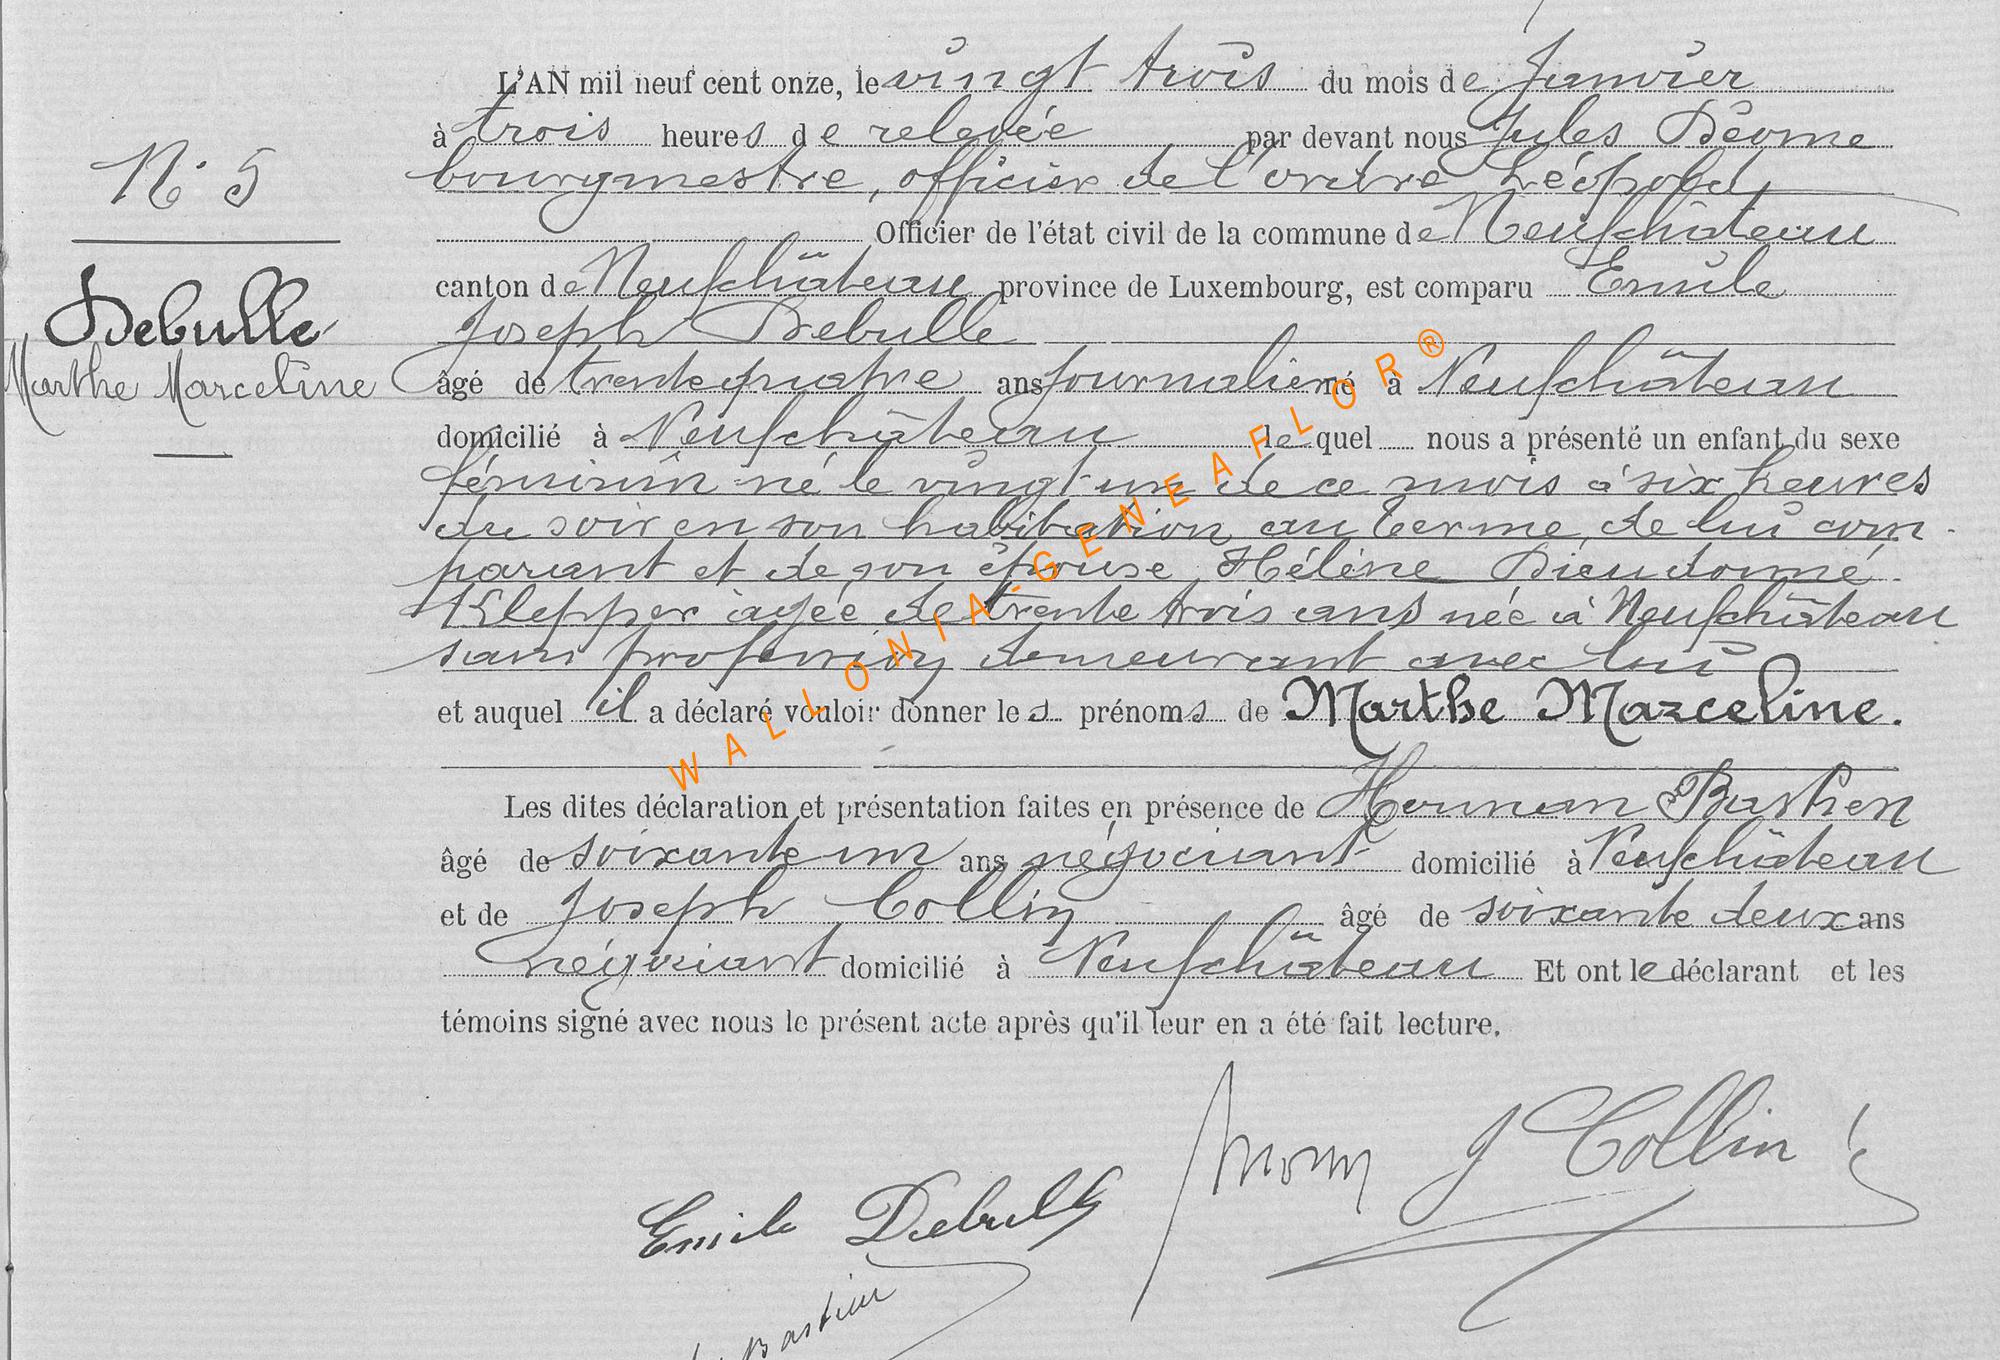 L'AN mil neuf cent onze, le vingt trois du mois de Janvier
à trois heures de relevée par devant nous Jules
bourgmestre, officier de l'ordre Léopold,
Officier de l'état civil de la commune de Neufchâteau
canton de Neufchâteau province de Luxembourg, est comparu Emile
Joseph Debulle
âgé de trente quatre ans journalier né à Neufchâteau
domicilié à Neufchâteau lequel nous a présenté un enfant du sexe
féminin né le vingt-un de ce mois à six heures
du soir en son habitation au terme, de lui com-
parant et de son épouse Hélène Dieudonné
Klepper âgée de trente trois ans née à Neufchâteau
sans profession demeurant avec lui
et auquel il a déclaré vouloir donner les prénoms de Marthe Marceline.
Les dites déclaration et présentation faites en présence de Herman Bastien
âgé de soixante un ans négociant domicilié à Neufchâteau
et de Joseph Collin âgé de soixante deux ans
négociant domicilié à Neufchâteau Et ont le déclarant et les
témoins signé avec nous le présent acte après qu'il leur en a été fait lecture.
N° 5
Debulle
Marthe Marceline
J Collin
Emile Debulle
Bastien
WALLONIA-GENEAFLOR®